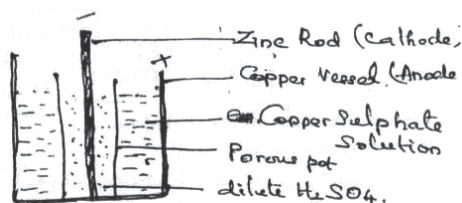 −
+
Zinc Rod (Cathode)
Copper Vessel (Anode
Copper Sulphate
Solution
Porous pot
dilute H2SO4.